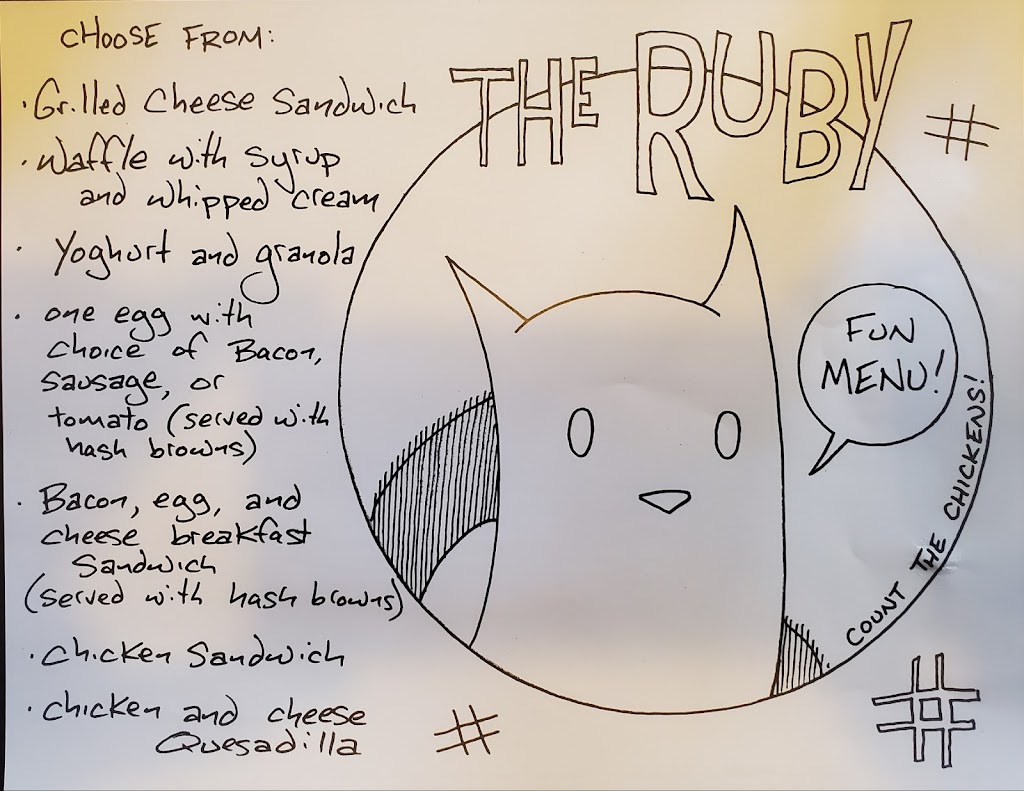 CHOOSE FROM:
· Grilled Cheese Sandwich
· Waffle with syrup
and whipped cream
· Yoghurt and granola
· one egg with
choice of Bacon,
sausage, or
tomato (served with
hash browns)
· Bacon, egg, and
cheese breakfast
Sandwich
(served with hash browns)
· Chicken Sandwich
· chicken and cheese
Quesadilla
THE RUBY
#
FUN
MENU!
COUNT THE CHICKENS!
#
#